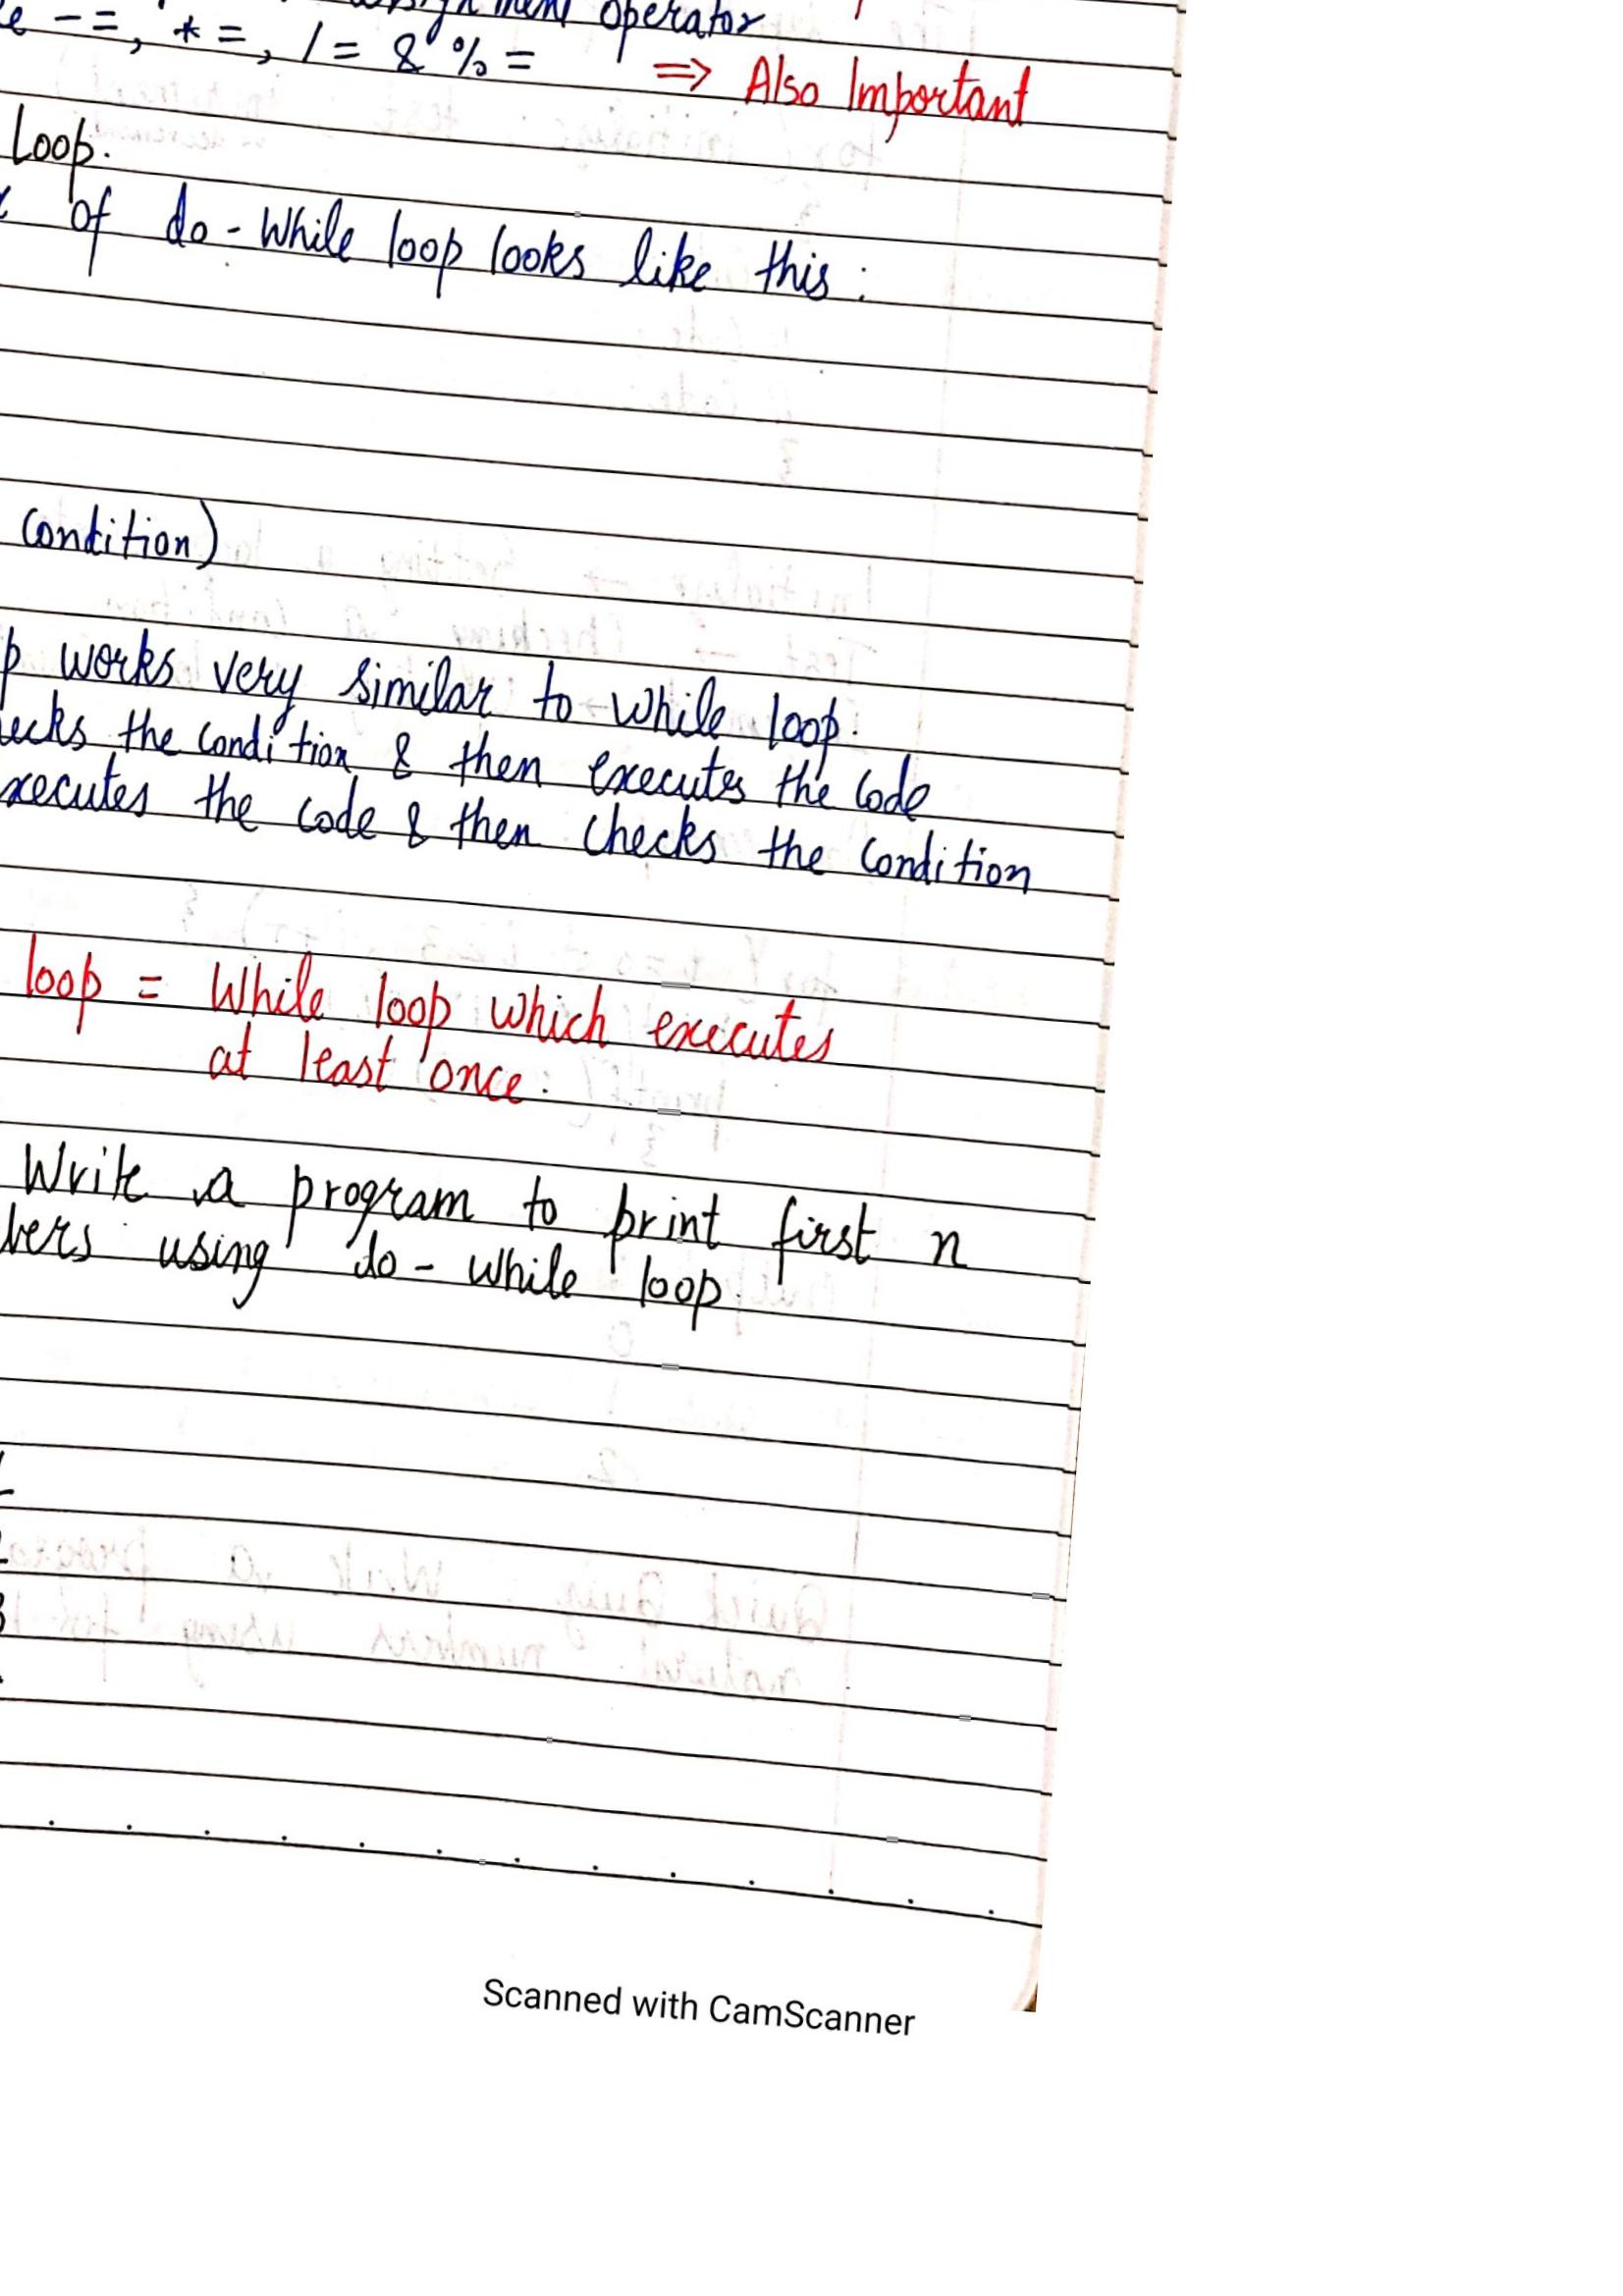 operator
-=, *=, /= & %= => Also Important
Loop.
of do-While loop looks like this:
Condition)
works very similar to while loop.
the condition & then executes the code
the code & then checks the condition
loop = While loop which executes
at least once.
Write a program to print first n
using do-while loop.
Scanned with CamScanner